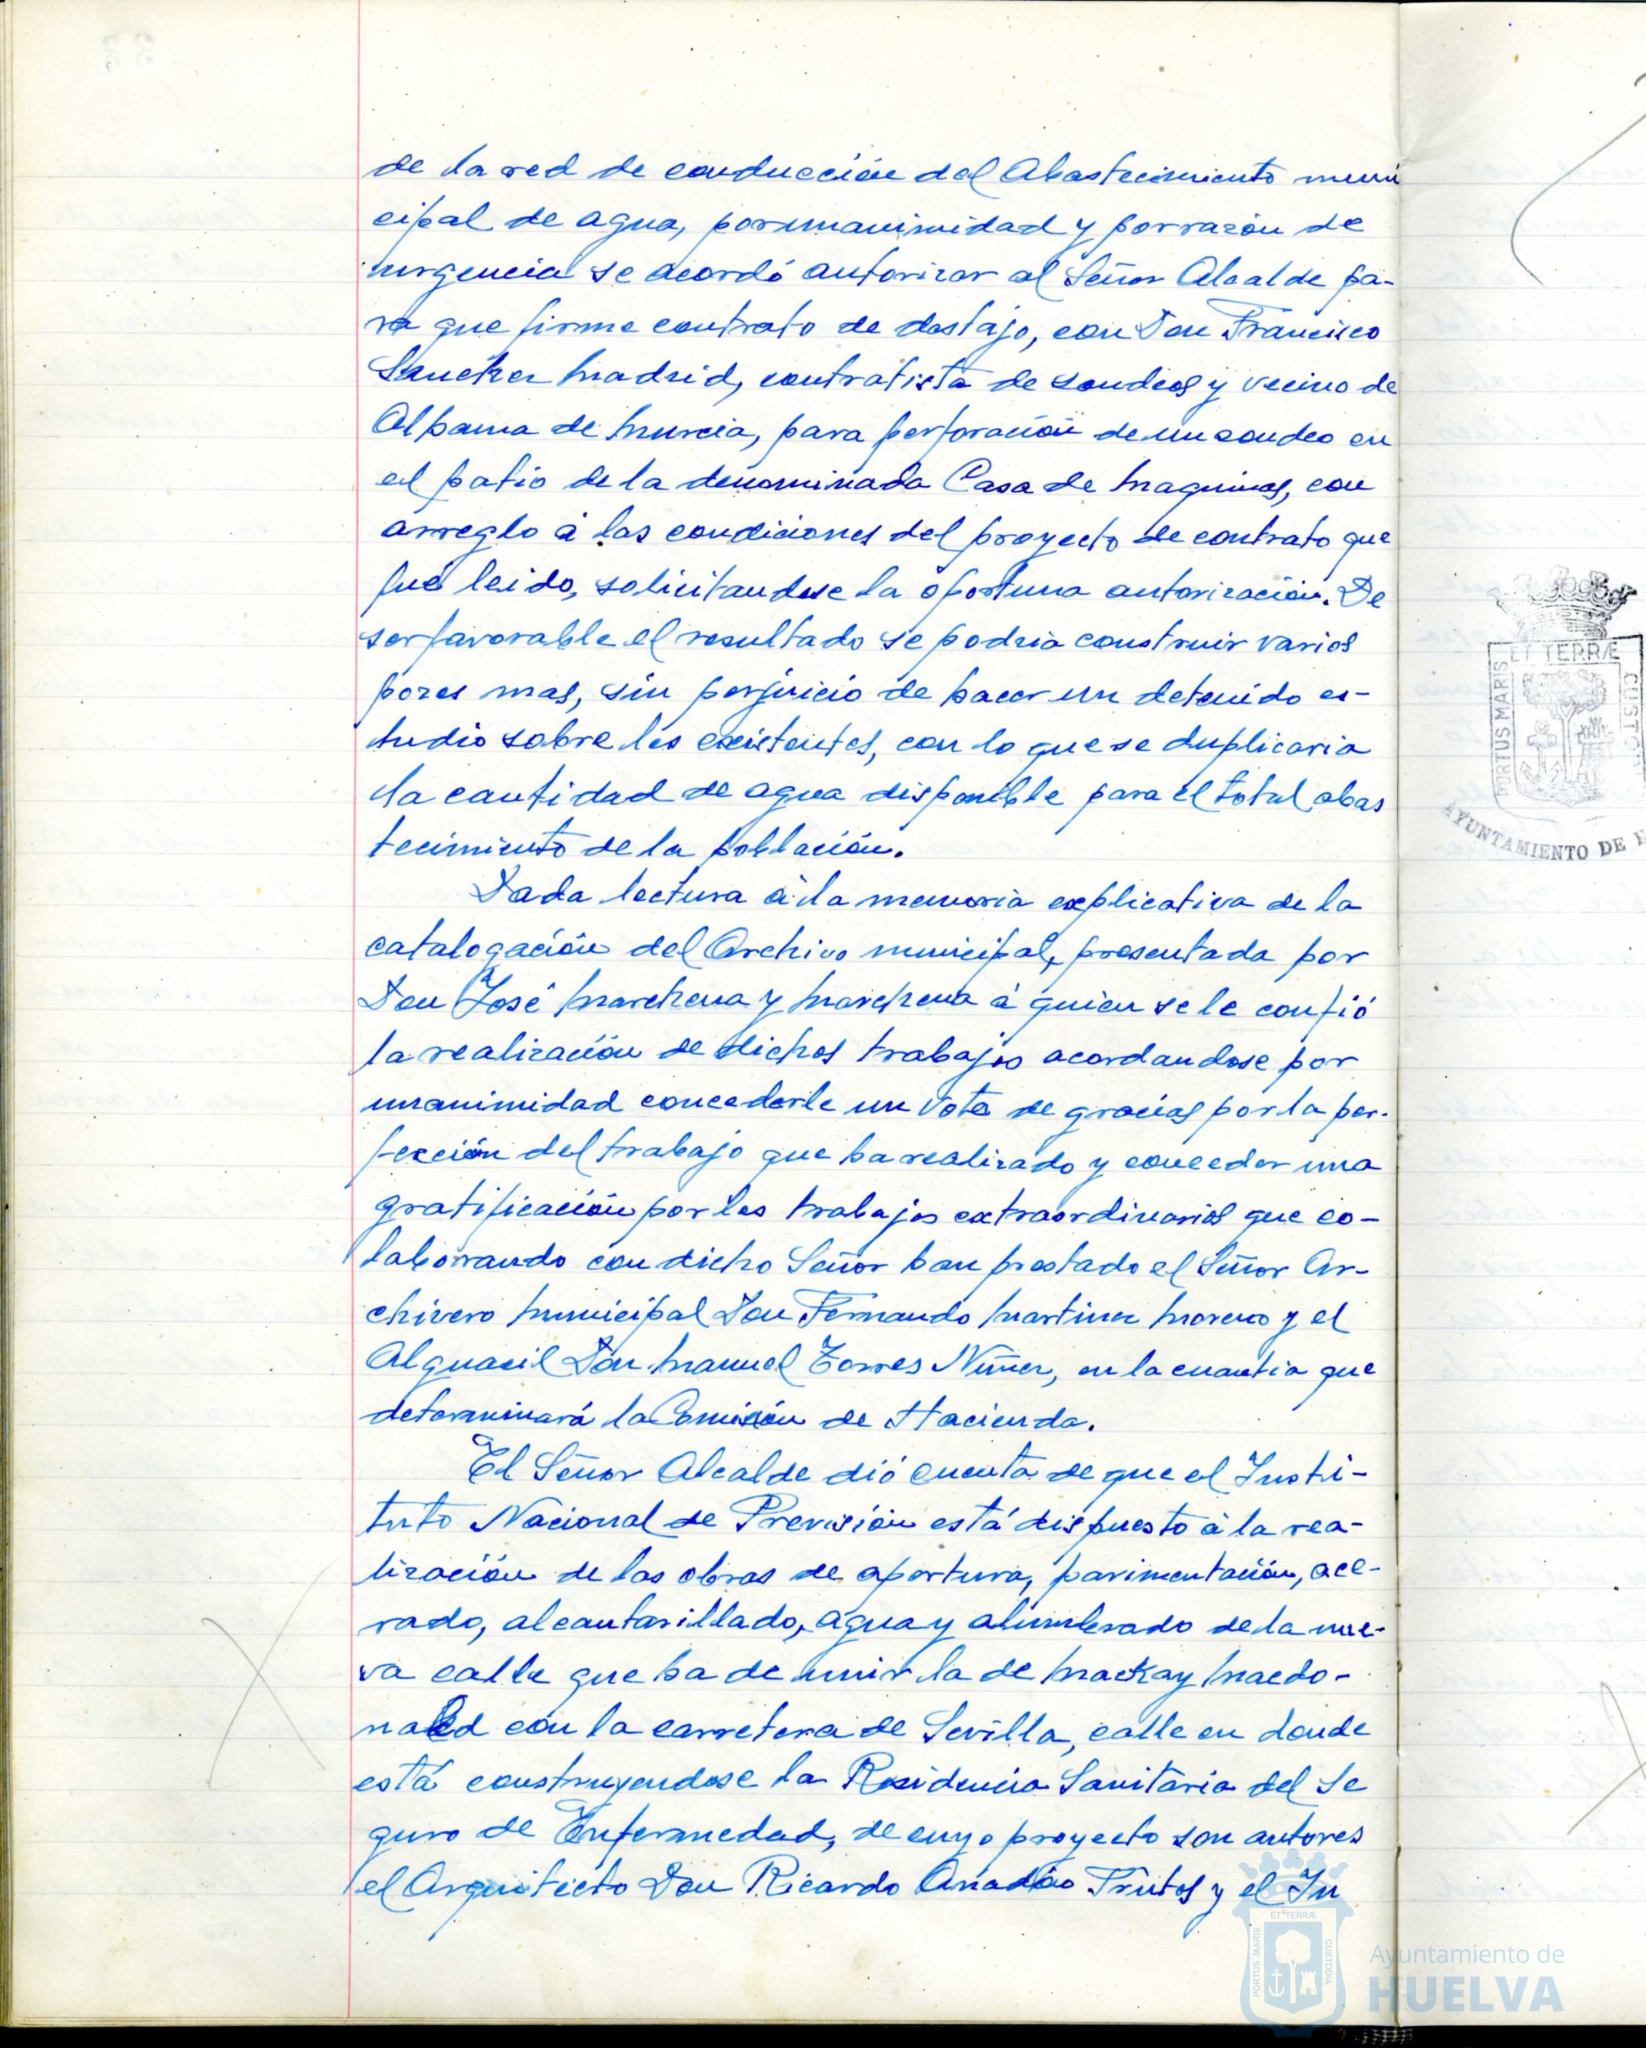 de la red de conducción del Abastecimiento muni
cipal de agua, por unanimidad y por razón de
urgencia se acordó autorizar al Señor Alcalde pa-
ra que firme contrato de destajo, con Don Francisco
Sanchez Madrid, contratista de sondeos y vecino de
Alhama de Murcia, para perforación de un sondeo en
el patio de la denominada Casa de Maquinas, con
arreglo á las condiciones del proyecto de contrato que
fué leido, solicitandose la oportuna autorización. De
ser favorable el resultado se podria construir varios
pozos mas, sin perjuicio de hacer un detenido es-
tudio sobre los existentes, con lo que se duplicaria
la cantidad de agua disponible para el total abas
tecimiento de la población.
Dada lectura á la memoria explicativa de la
catalogación del Archivo municipal, presentada por
Don José Marchena y Marchena á quien se le confió
la realización de dichos trabajos acordandose por
unanimidad concederle un voto de gracias por la per-
fección del trabajo que ha realizado y conceder una
gratificación por los trabajos extraordinarios que co-
laborando con dicho Señor han prestado el Señor Ar-
chivero Municipal Don Fernando Martinez Moreno y el
Alguacil Don Manuel Torres Nuñez, en la cuantia que
determinará la Comisión de Hacienda.
El Señor Alcalde dió cuenta de que el Insti-
tuto Nacional de Previsión está dispuesto á la rea-
lización de las obras de apertura, pavimentación, ace-
rado, alcantarillado, agua y alumbrado de la nue-
va calle que ha de unir la de Mackay Macdo-
nald con la carretera de Sevilla, calle en donde
está construyendose la Residencia Sanitaria del Se
guro de Enfermedad, de cuyo proyecto son autores
el Arquitecto Don Ricardo Anadón Frutos y el In
ET TERRÆ
PORTUS MARIS
CUSTO
AYUNTAMIENTO DE
ET TERRÆ
PORTUS MARIS
CUSTODIA
Ayuntamiento de
HUELVA